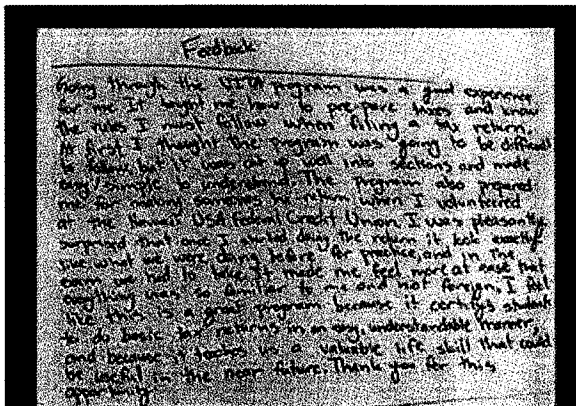 Feedback
Going through the VITA program was a good experience
for me. It taught me how to prepare taxes and know
the rules I must follow when filing a tax return.
At first I thought the program was going to be difficult
to learn but it was cut up well into sections and made
easy/simple to understand. The program also prepared
me for making someones tax return when I volunteered
at the USA Federal Credit Union. I was pleasantly
surprised that once I started doing the return it look exactly
like what we were doing before for practice and in the
exam we had to take. It made me feel more at ease that
everything was so similar to me and not foreign. I feel
like this is a great program because it certifys students
to do basic tax returns in an easy, understandable manner,
and because it teaches us a valuable life skill that could
be useful in the near future. Thank you for this
opportunity.